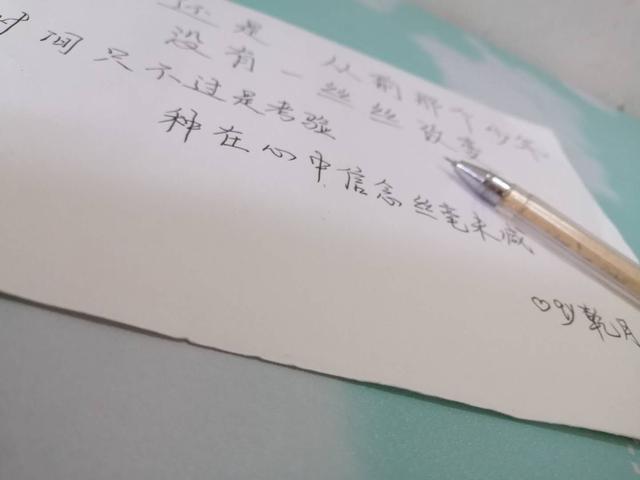 还是 从前那个少年
没有一丝丝改变
时间只不过是考验
种在心中信念丝毫未减